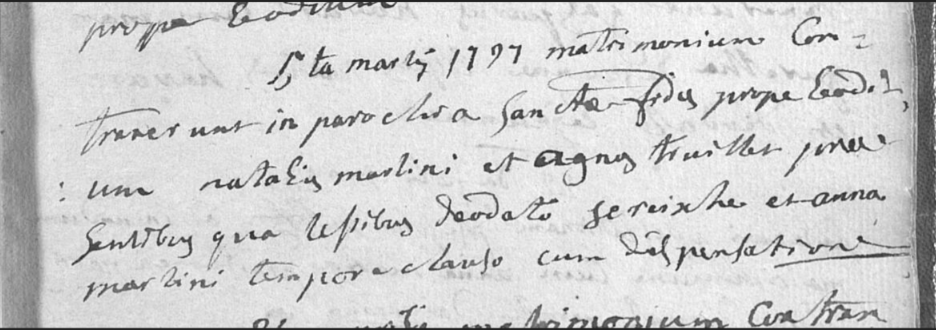 prope Leodium
5ta martij 1797 matrimonium Con=
traxerunt in parochia Sanctæ fidis prope Leodi,
: um natalis martini et agnes truillet præ
sentibus qua testibus deodato sereixhe et anna
martini tempore clauso cum dispensatione
matrimonium Contrax